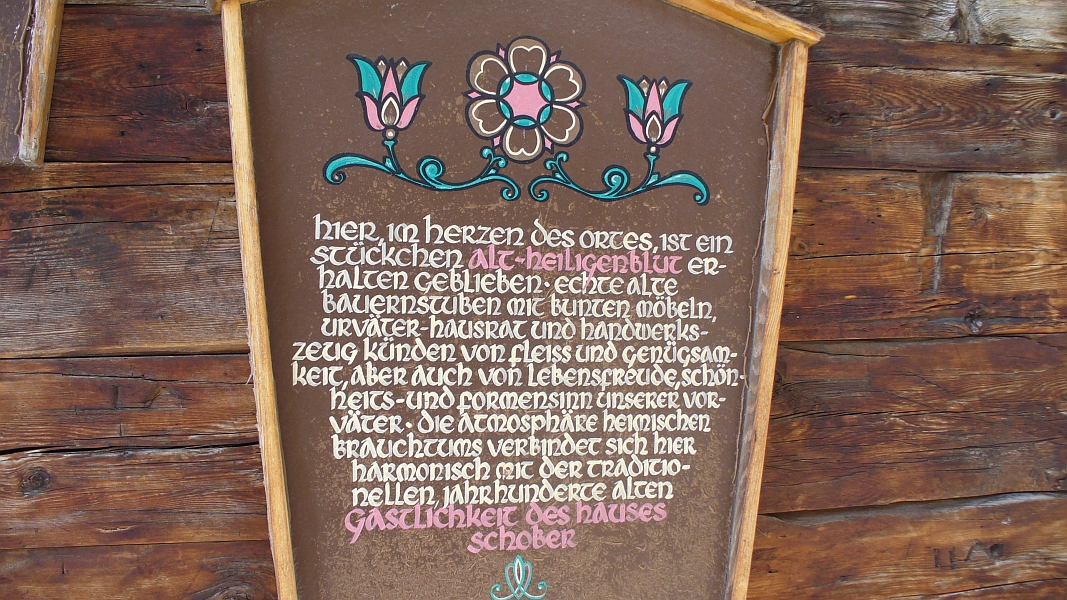 hier, im herzen des ortes, ist ein
stückchen alt-heiligenblut er-
halten geblieben · echte alte
bauernstuben mit bunten möbeln,
urväter-hausrat und handwerks-
zeug künden von fleiss und genügsam-
keit, aber auch von lebensfreude, schön-
heits- und formensinn unserer vor-
väter · die atmosphäre heimischen
brauchtums verbindet sich hier
harmonisch mit der traditio-
nellen, jahrhunderte alten
gastlichkeit des hauses
schober